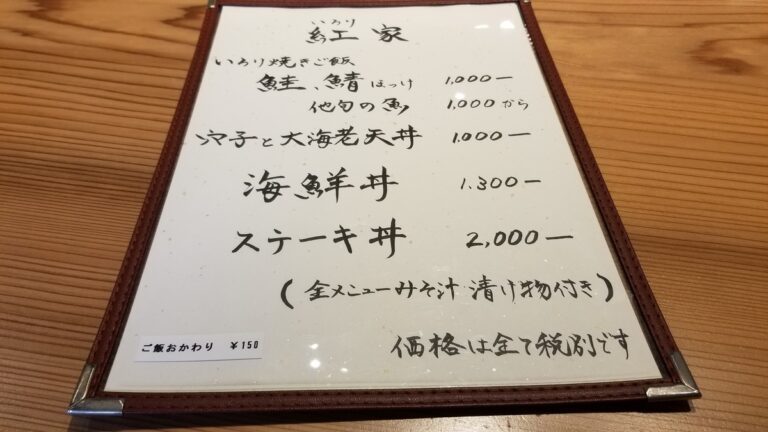 いろり
紅家
いろり焼きご飯
鮭、鯖 ほっけ 1,000ー
他旬の魚 1,000から
穴子と大海老天丼 1,000ー
海鮮丼 1.300ー
ステーキ丼 2,000ー
(全メニューみそ汁 漬け物付き)
ご飯おかわり ¥150
価格は全て税別です